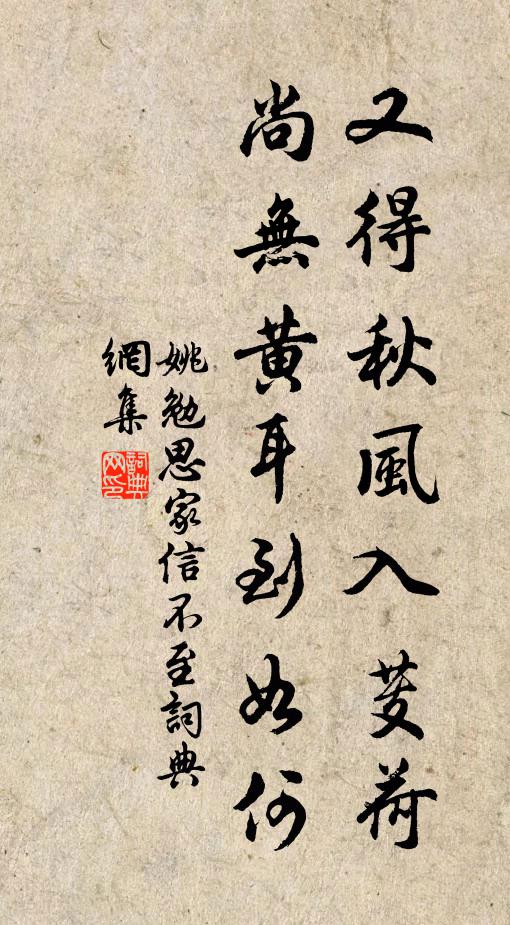 又得秋風入芰荷
尚無黃耳到如何
姚勉思家信不至詞典
網集
詞典
网印